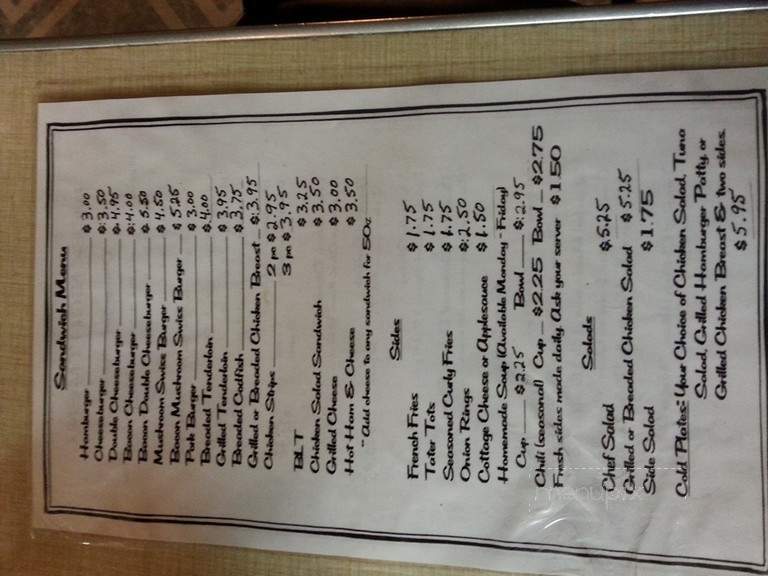 Sandwich Menu
Hamburger $3.00
Cheeseburger $3.50
Double Cheeseburger $4.95
Bacon Cheeseburger $4.00
Bacon Double Cheeseburger $5.50
Mushroom Swiss Burger $4.50
Bacon Mushroom Swiss Burger $5.25
Pork Burger $3.00
Breaded Tenderloin $4.00
Grilled Tenderloin $3.95
Breaded Codfish $3.75
Grilled or Breaded Chicken Breast $3.95
Chicken Strips 2 pc $2.95
3 pc $3.95
BLT $3.25
Chicken Salad Sandwich $3.50
Grilled Cheese $3.00
Hot Ham & Cheese $3.50
**Add cheese to any sandwich for 50¢
Sides
French Fries $1.75
Tater Tots $1.75
Seasoned Curly Fries $1.75
Onion Rings $2.50
Cottage Cheese or Applesauce $1.50
Homemade Soup (Available Monday - Friday)
Cup $2.25 Bowl $2.95
Chili (seasonal) Cup $2.25 Bowl $2.75
Fresh sides made daily. Ask your server $1.50
Salads
Chef Salad $5.25
Grilled or Breaded Chicken Salad $5.25
Side Salad $1.75
Cold Plates: Your Choice of Chicken Salad, Tuna
Salad, Grilled Hamburger Patty, or
Grilled Chicken Breast & two sides.
$5.95
menupix